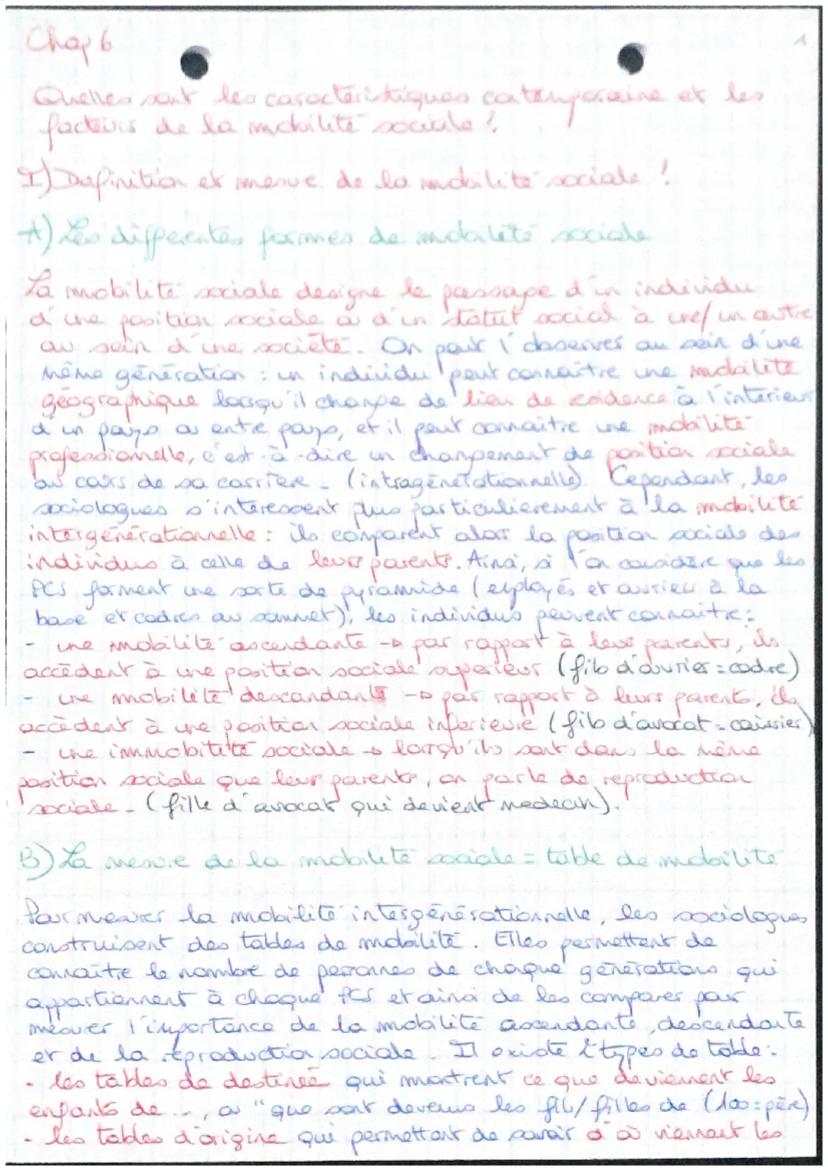 Chap 6
1
Quelles sont les caractéristiques contemporaine et les
facteurs de la mobilité sociale ?
I) Definition et mesure de la mobilité sociale !
A) Les différentes formes de mobilité sociale
La mobilité sociale designe le passage d'un individu
d'une position sociale ou d'un statut social à une/un autre
au sein d'une société. On peut l'observer au sein d'une
même génération : un individu peut connaitre une mobilité
géographique lorsqu'il change de lieu de résidence à l'intérieur
d'un pays ou entre pays, et il peut connaitre une mobilité
professionnelle, c'est-à-dire un changement de position sociale
au cours de sa carrière. (intragénérationnelle). Cependant, les
sociologues s'intéressent plus particulierement à la mobilité
intergénérationnelle : ils comparent alors la position sociale des
individus à celle de leurs parents. Ainsi, si l'on considère que les
PCS forment une sorte de pyramide (employés et ouvriers à la
base et cadres au sommet), les individus peuvent connaitre :
- une mobilité ascendante → par rapport à leurs parents, ils
accèdent à une position sociale superieur (fils d'ouvrier = cadre)
- une mobilité descendante → par rapport à leurs parents, ils
accèdent à une position sociale inferieure (fils d'avocat = caissier)
- une immobilité sociale → lorsqu'ils sont dans la même
position sociale que leurs parents, on parle de reproduction
sociale. (fille d'avocat qui devient medecin).
B) La mesure de la mobilité sociale = table de mobilité
Pour mesurer la mobilité intergénérationnelle, les sociologues
construisent des tables de mobilité. Elles permettent de
connaître le nombre de personnes de chaque générations qui
appartiennent à chaque PCS et ainsi de les comparer pour
mesurer l'importance de la mobilité ascendante, descendante
et de la reproduction sociale. Il existe 2 types de table :
• les tables de destinée qui montrent ce que deviennent les
enfants de .., ou "que sont devenus les fils/filles de (100=père)
• les tables d'origine qui permettent de savoir d'où viennent les